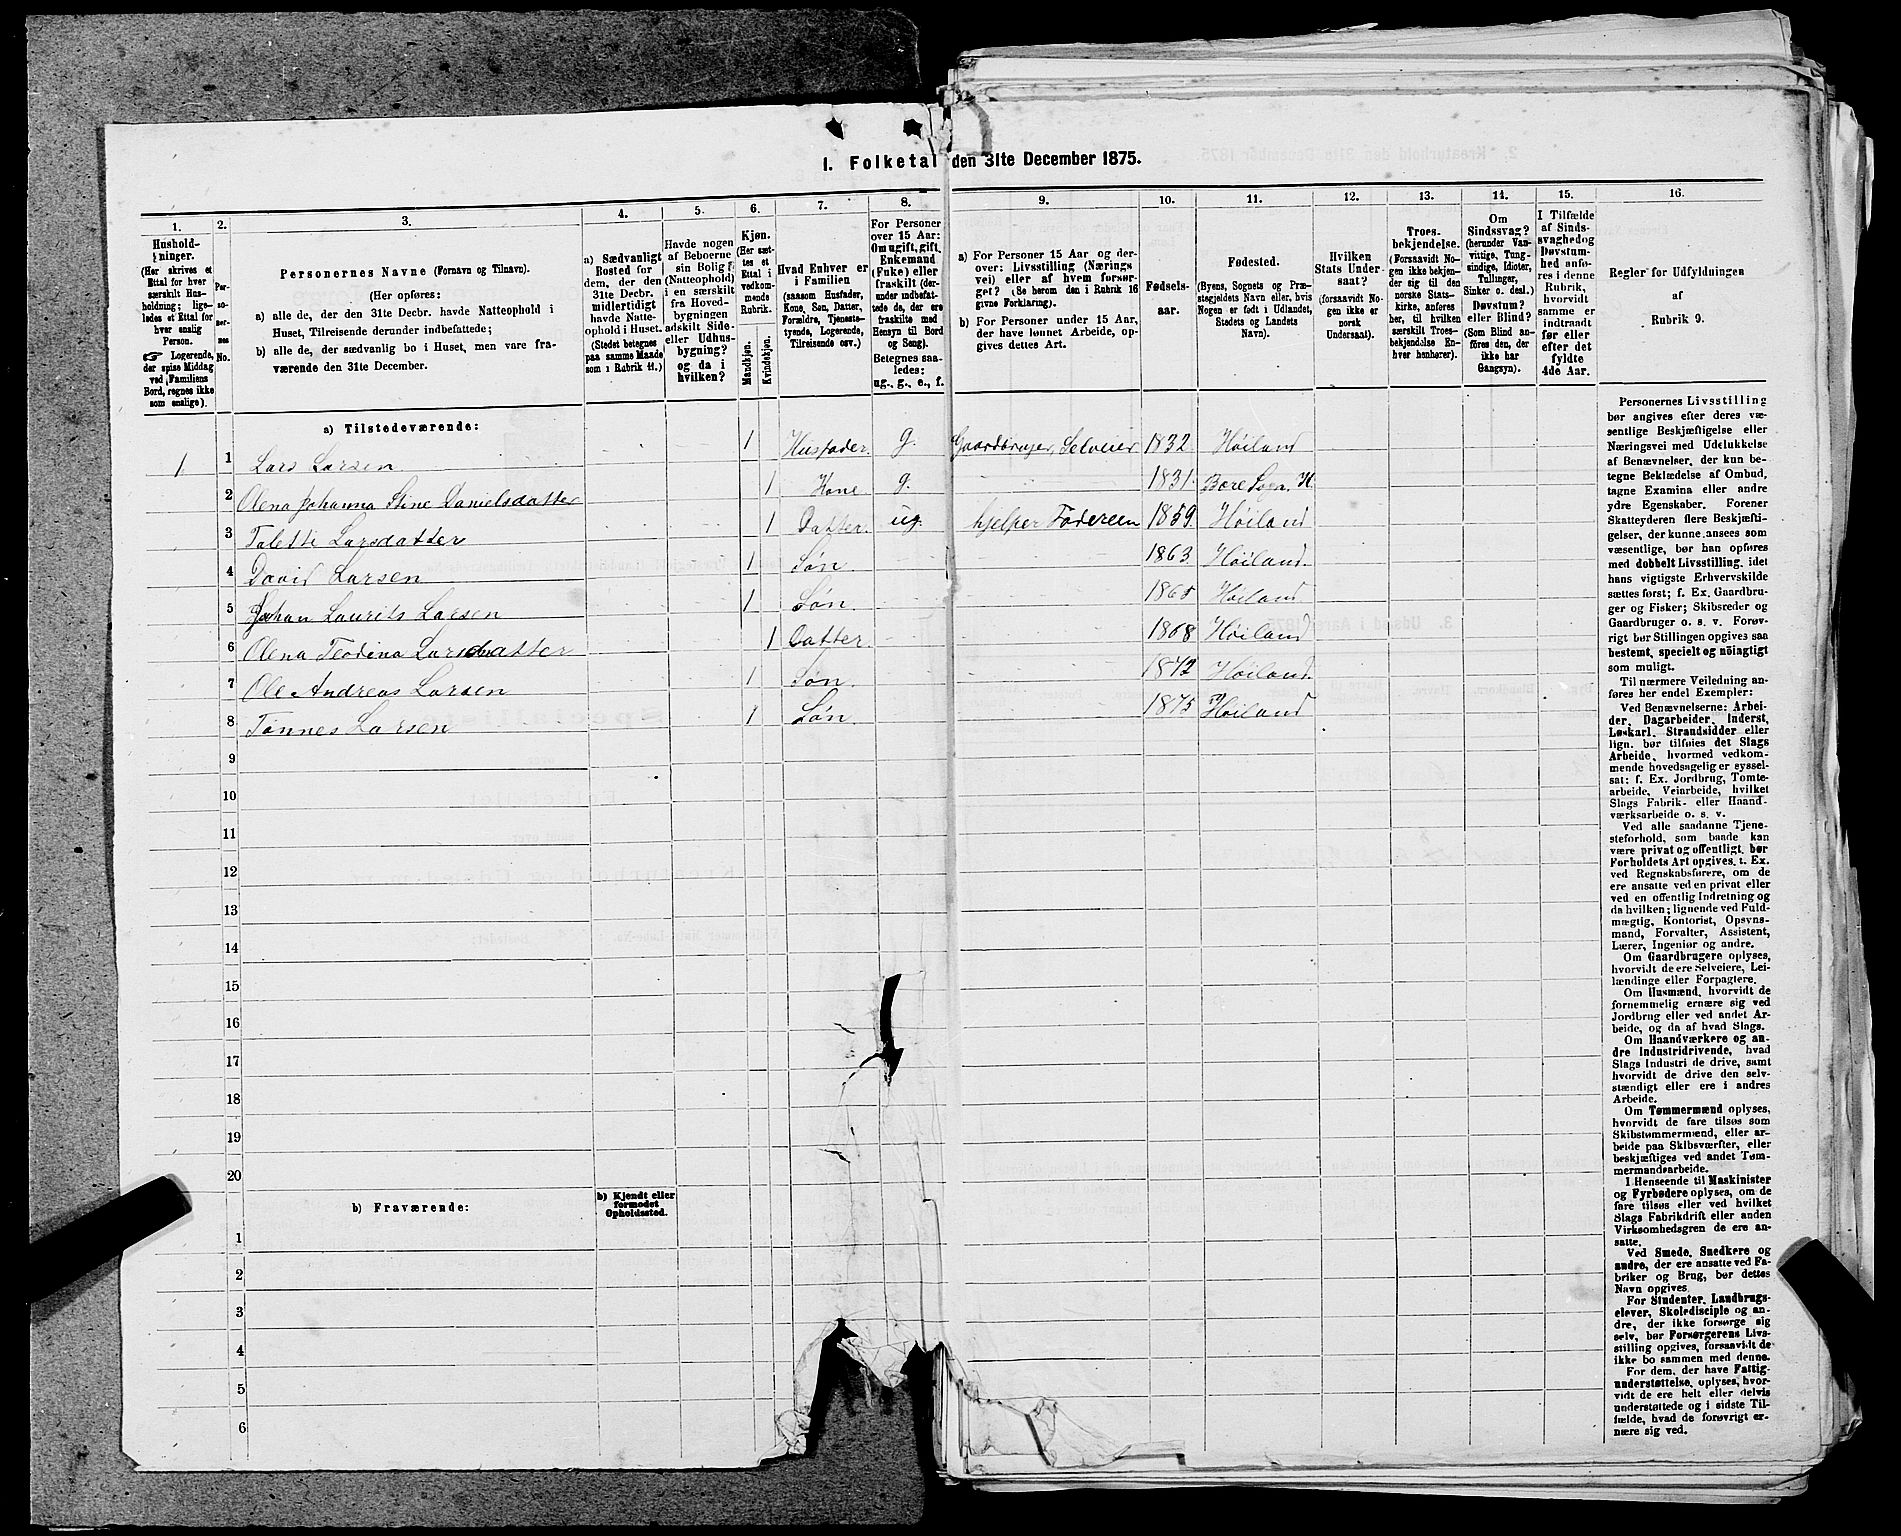 1. Folketal den 31te December 1875.
1. 2. 3. 4. 5. 6. 7. 8. 9. 10. 11. 12. 13. 14. 15. 16.
Hushold-
ninger.
(Her skrives et
Ettal for hver
særskilt Hus-
holdning; lige-
ledes et Ettal for
hver enslig
Person.
☞ Logerende,
der spise Middag
ved Familiens
Bord, regnes ikke
som enslige).
Per-
so-
ner-
nes
No.
Personernes Navne (Fornavn og Tilnavn).
(Her opføres:
a) alle de, der den 31te Decbr. havde Natteophold i
Huset, Tilreisende derunder indbefattede;
b) alle de, der sædvanlig bo i Huset, men vare fra-
værende den 31te December.
a) Sædvanligt
Bosted for
dem, der den
31te Decbr.
midlertidigt
havde Natte-
ophold i Huset.
(Stedet betegnes
paa samme Maade
som i Rubrik 11.)
Havde nogen
af Beboerne
sin Bolig
(Natteophold)
i en særskilt
fra Hoved-
bygningen
adskilt Side-
eller Udhus-
bygning?
og da i
hvilken?
Kjøn.
(Her sæt-
tes et
Ettal i
vedkom-
mende
Rubrik.
Mandkjøn.
Kvindekjøn.
Hvad Enhver er
i Familien
(saasom Husfader,
Kone, Søn, Datter,
Forældre, Tjeneste-
tyende, Logerende,
Tilreisende osv.).
For Personer
over 15 Aar:
Om ugift, gift,
Enkemand
(Enke) eller
fraskilt (der-
under indbefat-
tede de, der ere
fraskilte med
Hensyn til Bord
og Seng).
Betegnes saa-
ledes:
ug., g., e., f.
a) For Personer 15 Aar og der-
over: Livsstilling (Nærings
vei) eller af hvem forsør-
get? (Se herom den i Rubrik 16
givne Forklaring).
b) For Personer under 15 Aar,
der have lønnet Arbeide, op-
gives dettes Art.
Fødsels-
aar.
Fødested.
(Byens, Sognets og Præ-
stegjeldets Navn eller, hvis
Nogen er født i Udlandet,
Stedets og Landets
Navn).
Hvilken
Stats Under-
saat?
(forsaavidt No-
gen ikke er
norsk
Undersaat).
Troes-
bekjendelse.
(Forsaavidt No-
gen ikke bekjen-
der sig til den
norske Stats-
kirke, anføres
her, til hvilken
særskilt Troes-
bekjendelse En-
hver henhører).
Om
Sindssvag?
(herunder Van-
vittige, Tung-
sindige, Idioter,
Tullinger,
Sinker o. desl.)
Døvstum?
eller Blind?
(Som Blind an-
føres den, der
ikke har
Gangsyn).
I Tilfælde
af Sinds-
svaghed og
Døvstum-
hed anfø-
res i denne
Rubrik,
hvorvidt
samme er
indtraadt
før eller
efter det
fyldte
4de Aar.
Regler for Udfyldningen
af
Rubrik 9.
a) Tilstedeværende:
1 1 Lars Larsen 1 Husfader g. Gaardbruger, Selveier 1832. Høiland
2 Olena Johanna Stine Danielsdatter 1 Kone g. 1831. Bore Sogn. K
3 Taletti Larsdatter 1 Datter. ug. hjelper Faderen 1859. Høiland
4 David Larsen 1 Søn. 1863. Høiland.
5 Johan Laurits Larsen 1 Søn. 1865 Høiland
6 Olena Teodina Larsdatter 1 Datter. 1868 Høiland
7 Ole Andreas Larsen 1 Søn. 1872 Høiland.
8 Tønnes Larsen 1 Søn. 1875 Høiland
9
10
11
12
13
14
15
16
17
18
19
20
b) Fraværende:
b) Kjendt eller
formodet
Opholdssted.
1
2
3
4
5
6
Personernes Livsstilling
bør angives efter deres væ-
sentlige Beskjæftigelse eller
Næringsvei med Udelukkelse
af Benævnelser, der kun be-
tegne Beklædelse af Ombud,
tagne Examina eller andre
ydre Egenskaber. Forener
Skatteyderen flere Beskjæfti-
gelser, der kunne ansees som
væsentlige, bør han opføres
med dobbelt Livsstilling, idet
hans vigtigste Erhvervskilde
sættes først; f. Ex. Gaardbru-
ger og Fisker; Skibsreder og
Gaardbruger o. s. v. Forøv-
rigt bør Stillingen opgives saa
bestemt, specielt og nøiagtigt
som muligt.
Til nærmere Veiledning an-
føres her endel Exempler:
Ved Benævnelserne: Arbei-
der, Dagarbeider, Inderst,
Løskarl, Strandsidder eller
lign. bør tilføies det Slags
Arbeide, hvormed vedkom-
mende hovedsagelig er syssel-
sat: f. Ex. Jordbrug, Tomte-
arbeide, Veiarbeide, hvilket
Slags Fabrik- eller Haand-
værksarbeide o. s. v.
Ved alle saadanne Tjene-
steforhold, som baade kan
være privat og offentligt, bør
Forholdets Art opgives. t. Ex.
ved Regnskabsførere, om de
ere ansatte ved en privat eller
ved en offentlig Indretning og
da hvilken; lignende ved Fuld-
mægtig, Kontorist, Opsyns-
mand, Forvalter, Assistent,
Lærer, Ingeniør og andre.
Om Gaardbrugere oplyses,
hvorvidt de ere Selveiere, Lei-
lændinge eller Forpagtere.
Om Husmænd, hvorvidt de
fornemmelig ernære sig ved
Jordbrug eller ved andet Ar-
beide, og da af hvad Slags.
Om Haandværkere og an-
dre Industridrivende, hvad
Slags Industri de drive, samt
hvorvidt de drive den selv-
stændigt eller ere i andres
Arbeide.
Om Tømmermænd oplyses,
hvorvidt de fare tilsøs som
Skibstømmermænd, eller ar-
beide paa Skibsværfter, eller
beskjæftiges ved andet Tøm-
mermandsarbeide.
I Henseende til Maskinister
og Fyrbødere oplyses, om de
fare tilsøs eller ved hvilket
Slags Fabrikdrift eller anden
Virksomhedsgren de ere an-
satte.
Ved Smede, Snedkere og
andre, der ere ansatte ved Fa-
briker og Brug, bør dettes
Navn opgives.
For Studenter, Landbrugs-
elever, Skoledisciple og an-
dre, der ikke forsørge sig
selv, bør Forsørgerens Livs-
stilling opgives, forsaavidt de
ikke bo sammen med denne.
For dem, der have Fattig-
understøttelse, oplyses, hvor-
vidt de ere helt eller delvis
understøttede og i sidste Til-
fælde, hvad de forøvrigt er-
nære sig ved.